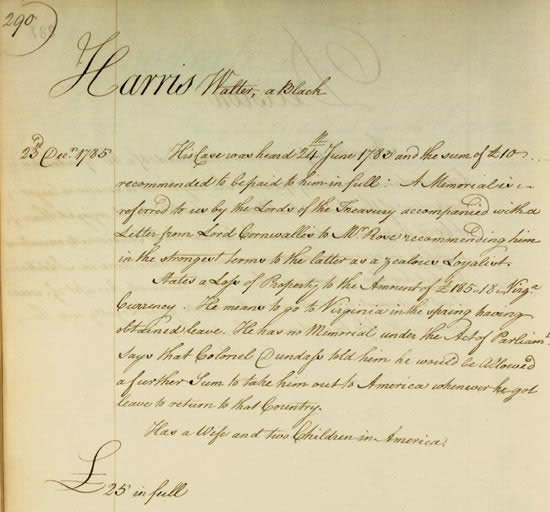 290
Harris Walter, a Black
23d Decr. 1785
His Case was heard 24th June 1783 and the sum of £10
recommended to be paid to him in full: A Memorial is
referred to us by the Lords of the Treasury accompanied with a
Letter from Lord Cornwallis to Mr Rose recommending him
in the strongest terms to the latter as a zealous Loyalist.
States a Loss of Property to the Amount of £185.18 Virga
Currency. He means to go to Virginia in the spring having
obtained leave. He has no Memorial under the Act of Parliamt
says that Colonel Dundass told him he would be Allowed
a further Sum to take him out to America whenever he got
leave to return to that Country.
Has a Wife and two Children in America.
£25 in full